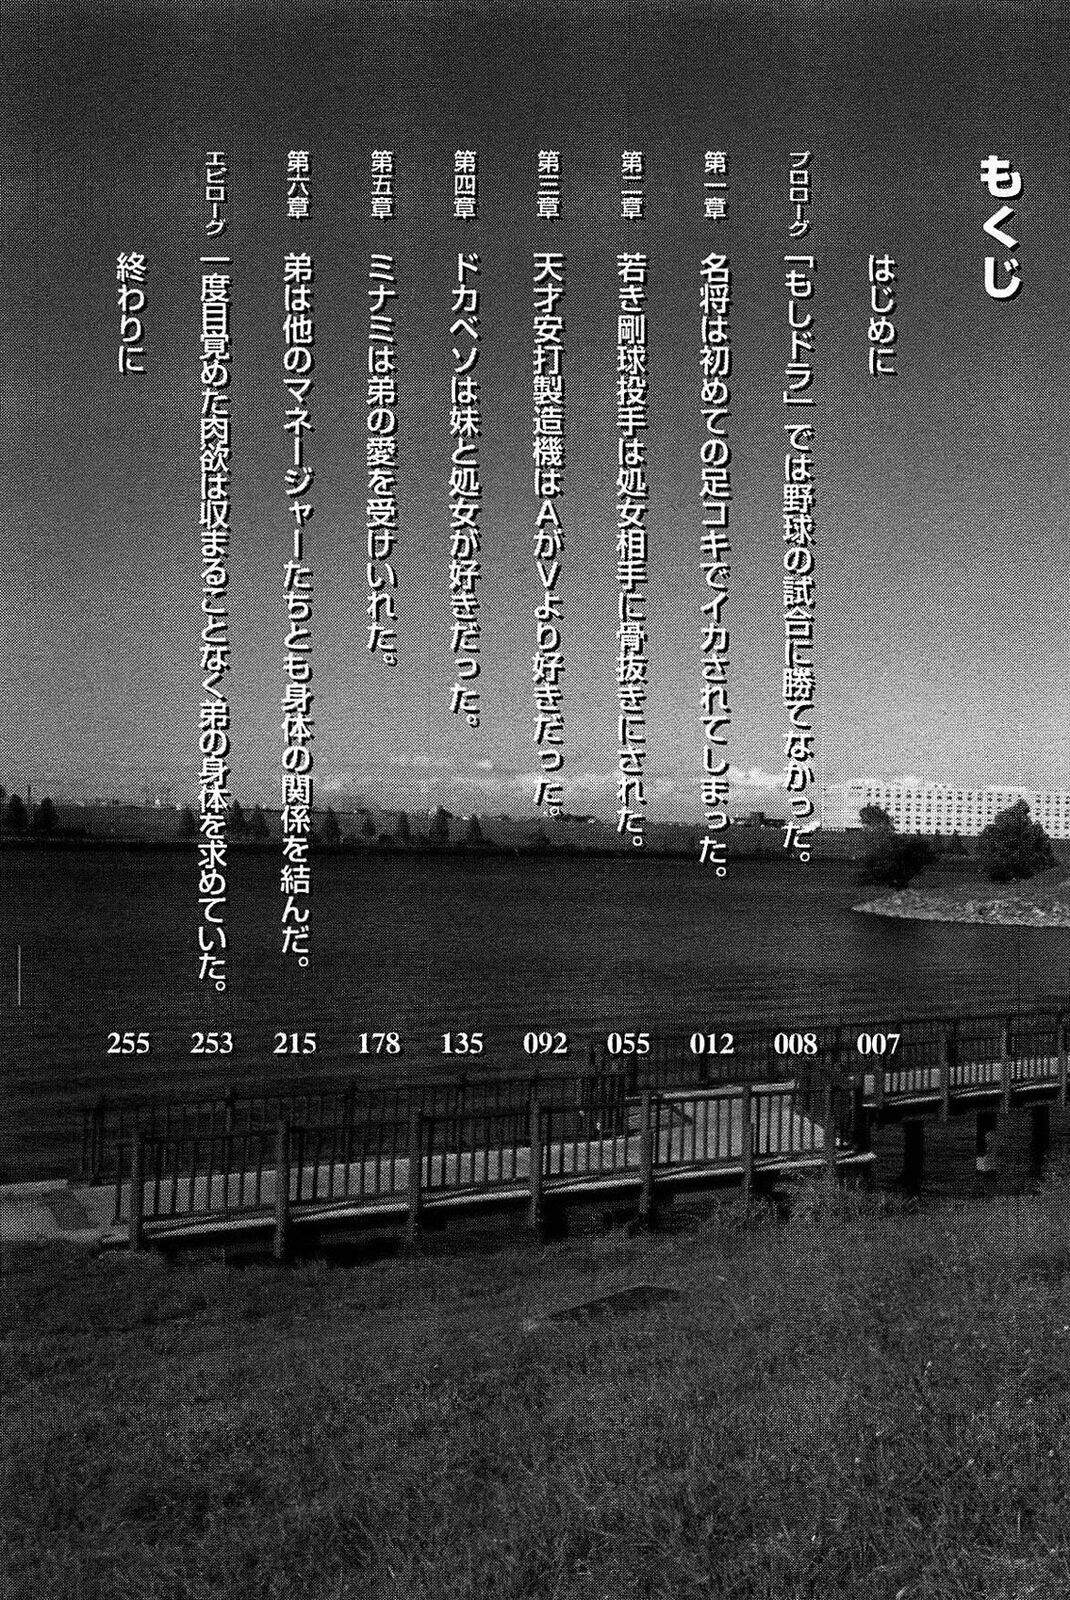 もくじ
はじめに 007
プロローグ 「もしドラ」では野球の試合に勝てなかった。 008
第一章 名将は初めての足コキでイカされてしまった。 012
第二章 若き剛球投手は処女相手に骨抜きにされた。 055
第三章 天才安打製造機はAがVより好きだった。 092
第四章 ドカベソは妹と処女が好きだった。 135
第五章 ミナミは弟の愛を受けいれた。 178
第六章 弟は他のマネージャーたちとも身体の関係を結んだ。 215
エピローグ 一度目覚めた肉欲は収まることなく弟の身体を求めていた。 253
終わりに 255